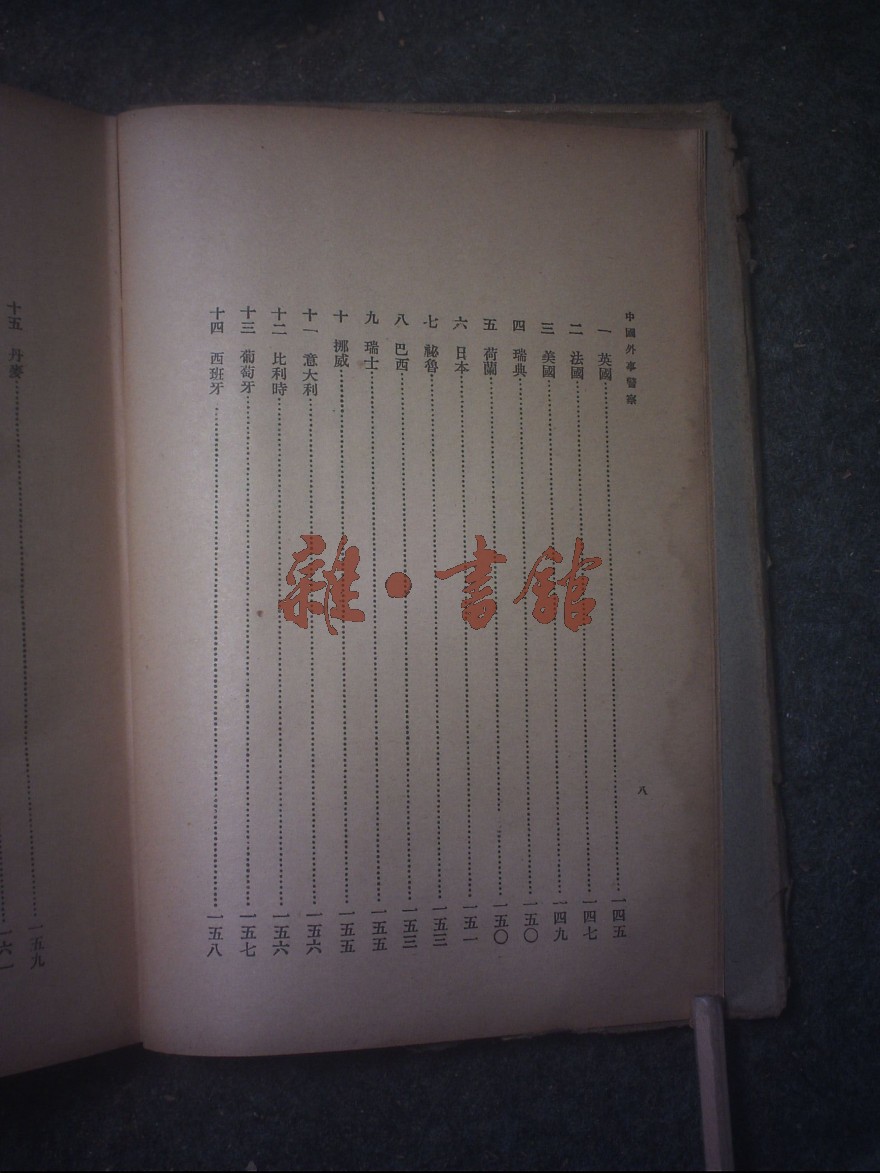 中國外事警察
八
一 英國……一四五
二 法國……一四七
三 美國……一四九
四 瑞典……一五〇
五 荷蘭……一五〇
六 日本……一五一
七 祕魯……一五三
八 巴西……一五三
九 瑞士……一五五
十 挪威……一五五
十一 意大利……一五六
十二 比利時……一五六
十三 葡萄牙……一五七
十四 西班牙……一五八
十五 丹麥……一五九
一六一
雜·書館